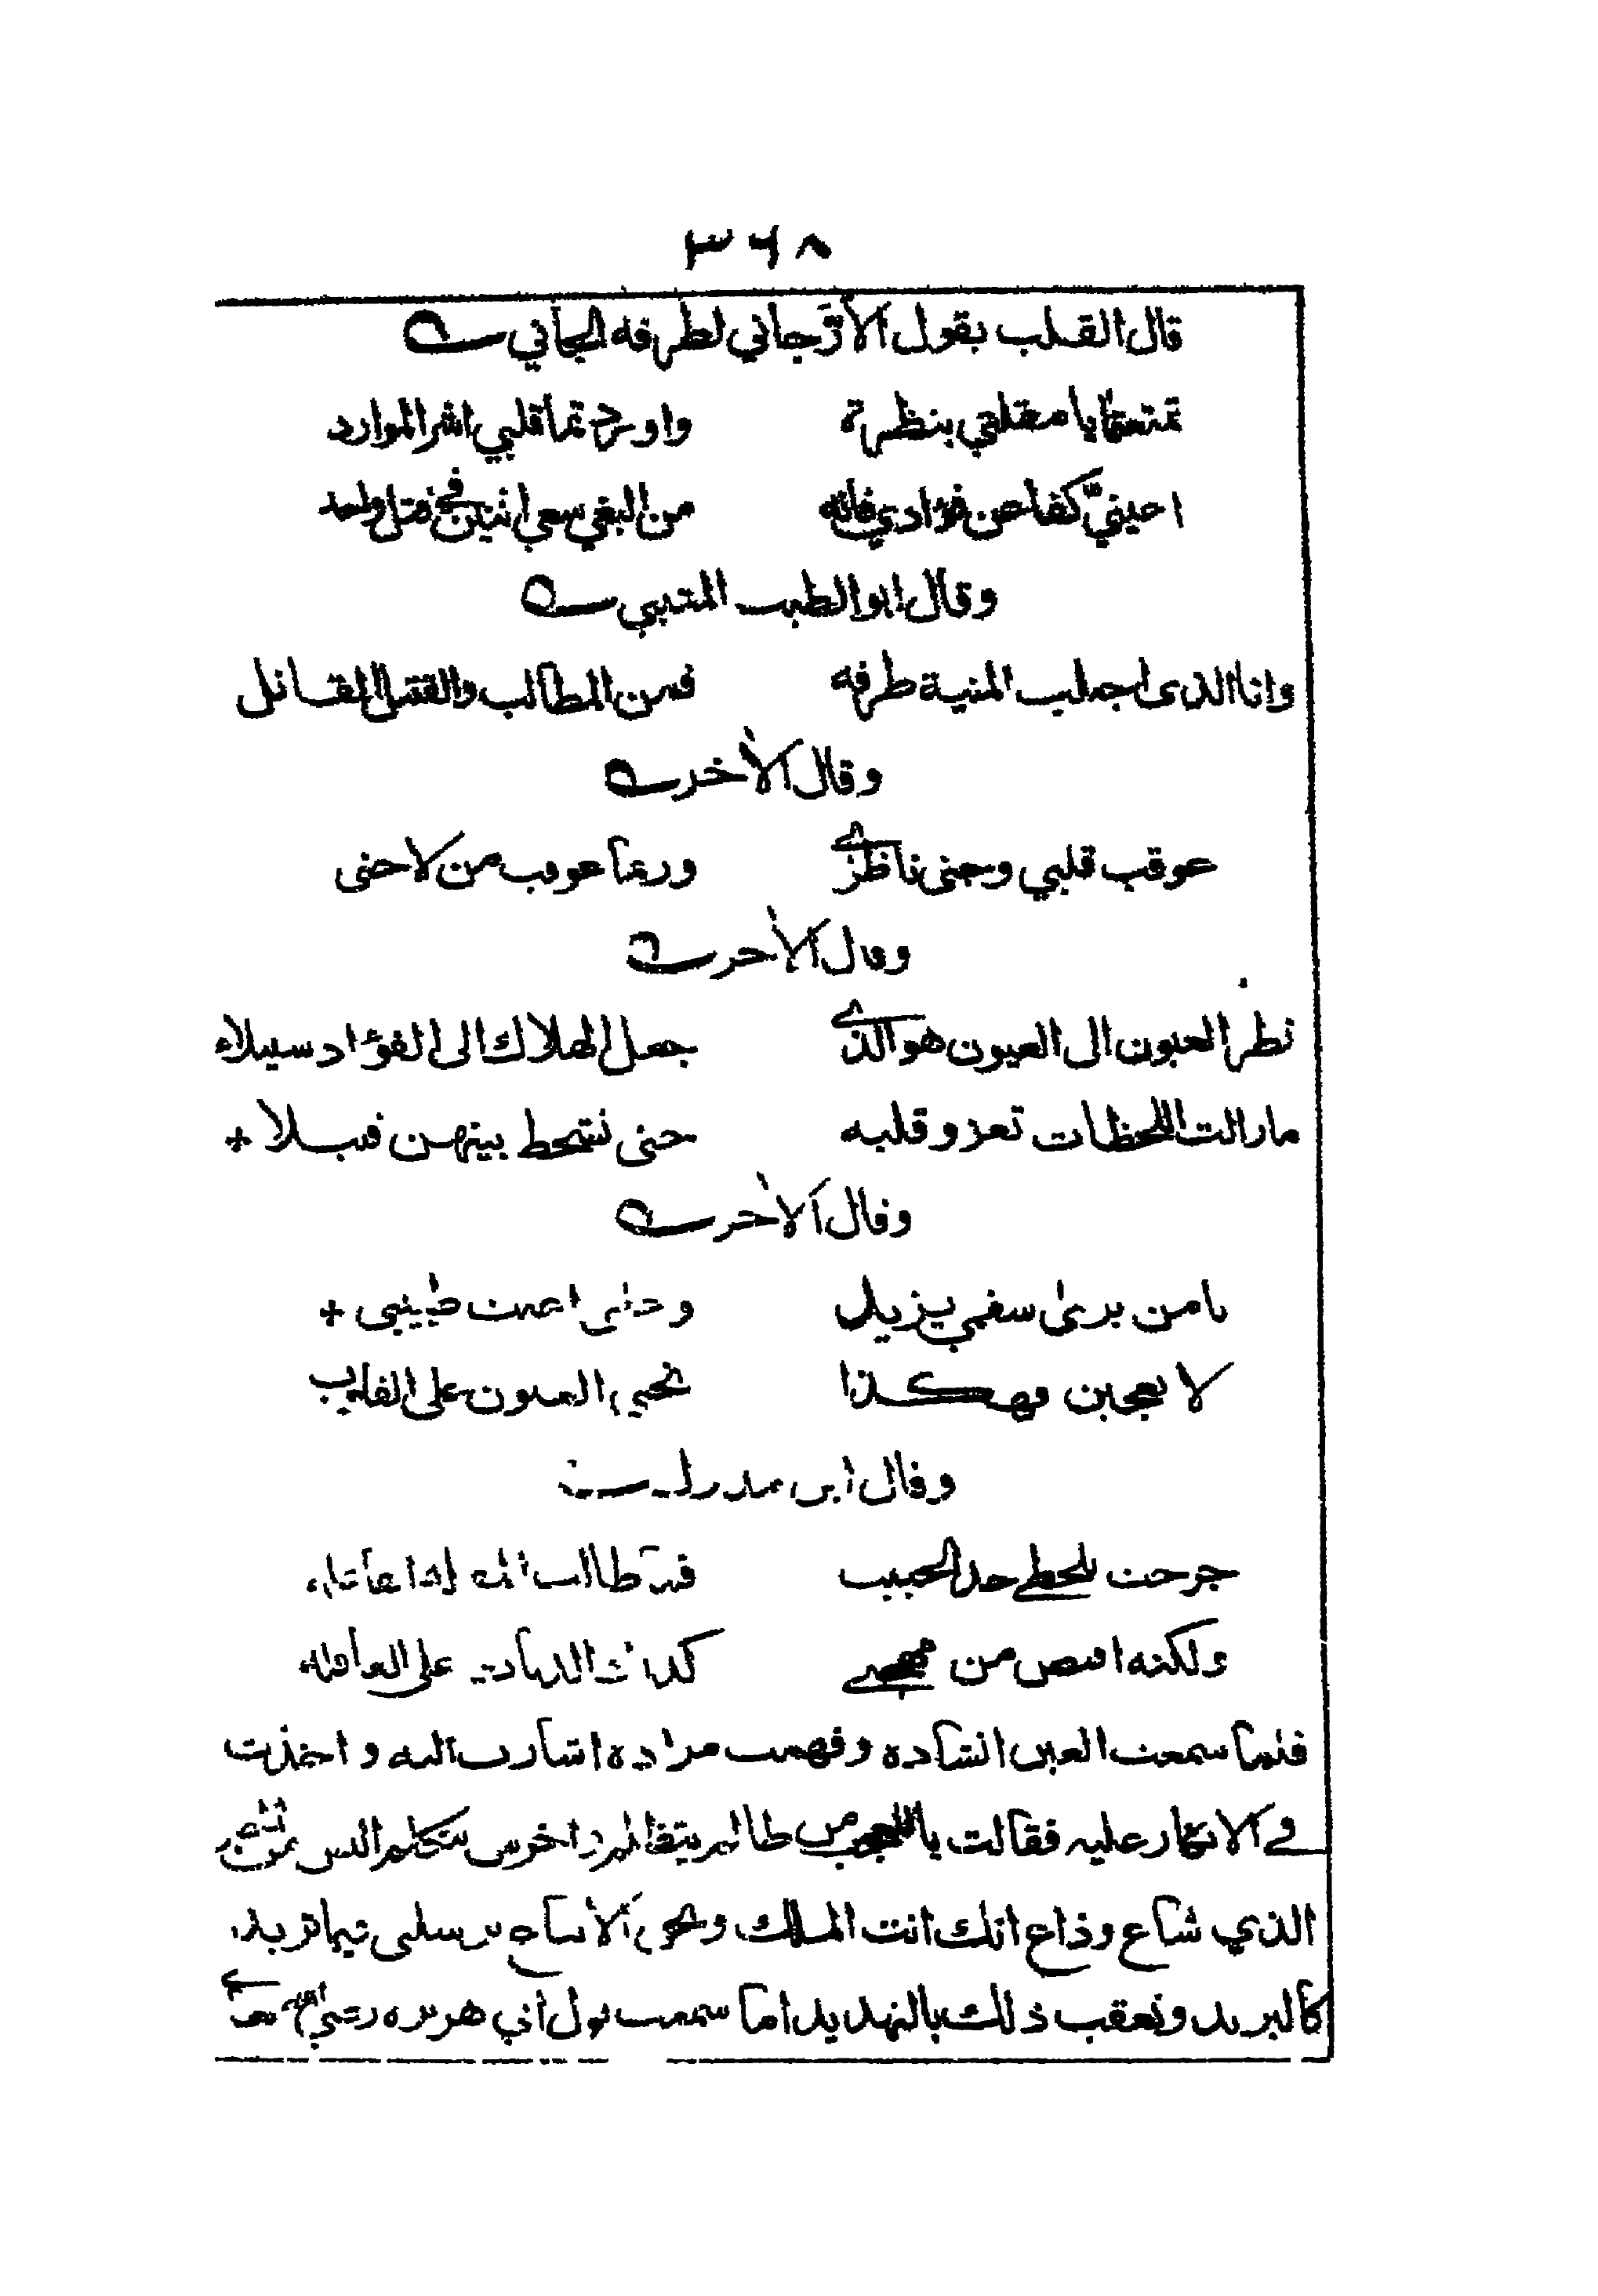 ٣٦٨
قال القلب بقول الأرَّجاني لطرفه الجاني
تمتعتما يا مقلتي بنظرة واوردتما قلبي اشر الموارد
اعينيّ كفا عن فؤادي فانه من البغي سعي اثنين في قتل واحد
وقال ابو الطيب المتنبي
وانا الذى اجتلب المنية طرفه فمن المطالب والقتيل القاتل
وقال الآخر
عوقب قلبي وجنى ناظري وربما عوقب من لا جنى
وقال الآخر
نظر العيون الى العيون هو الذي جعل الهلاك الى الفؤاد سبيلا
ما زالت اللحظات تغزو قلبه حتى تشحط بينهن قتيلا
وقال الآخر
يا من يرى سقمي يزيد وعلتي اعيت طبيبي
لا تعجبن فهكذا تجني العيون على القلوب
وقال ابن
جرحت بلحظي خد الحبيب فما طالب المقلة الفاعله
ولكنه اقتص من مهجتي كذاك الديات على العاقله
فلما سمعت العين انشاده وفهمت مراده اشارت اليه واخذت
في الانكار عليه فقالت يا للعجب من ظالم يتظلم واخرس يتكلم اليس
الذي شاع وذاع انك انت الملك ونحن الاتباع ترسلني فيما تريد
كالبريد وتعقب ذلك بالتهديد اما سمعت قول أبي هريره رضي الله